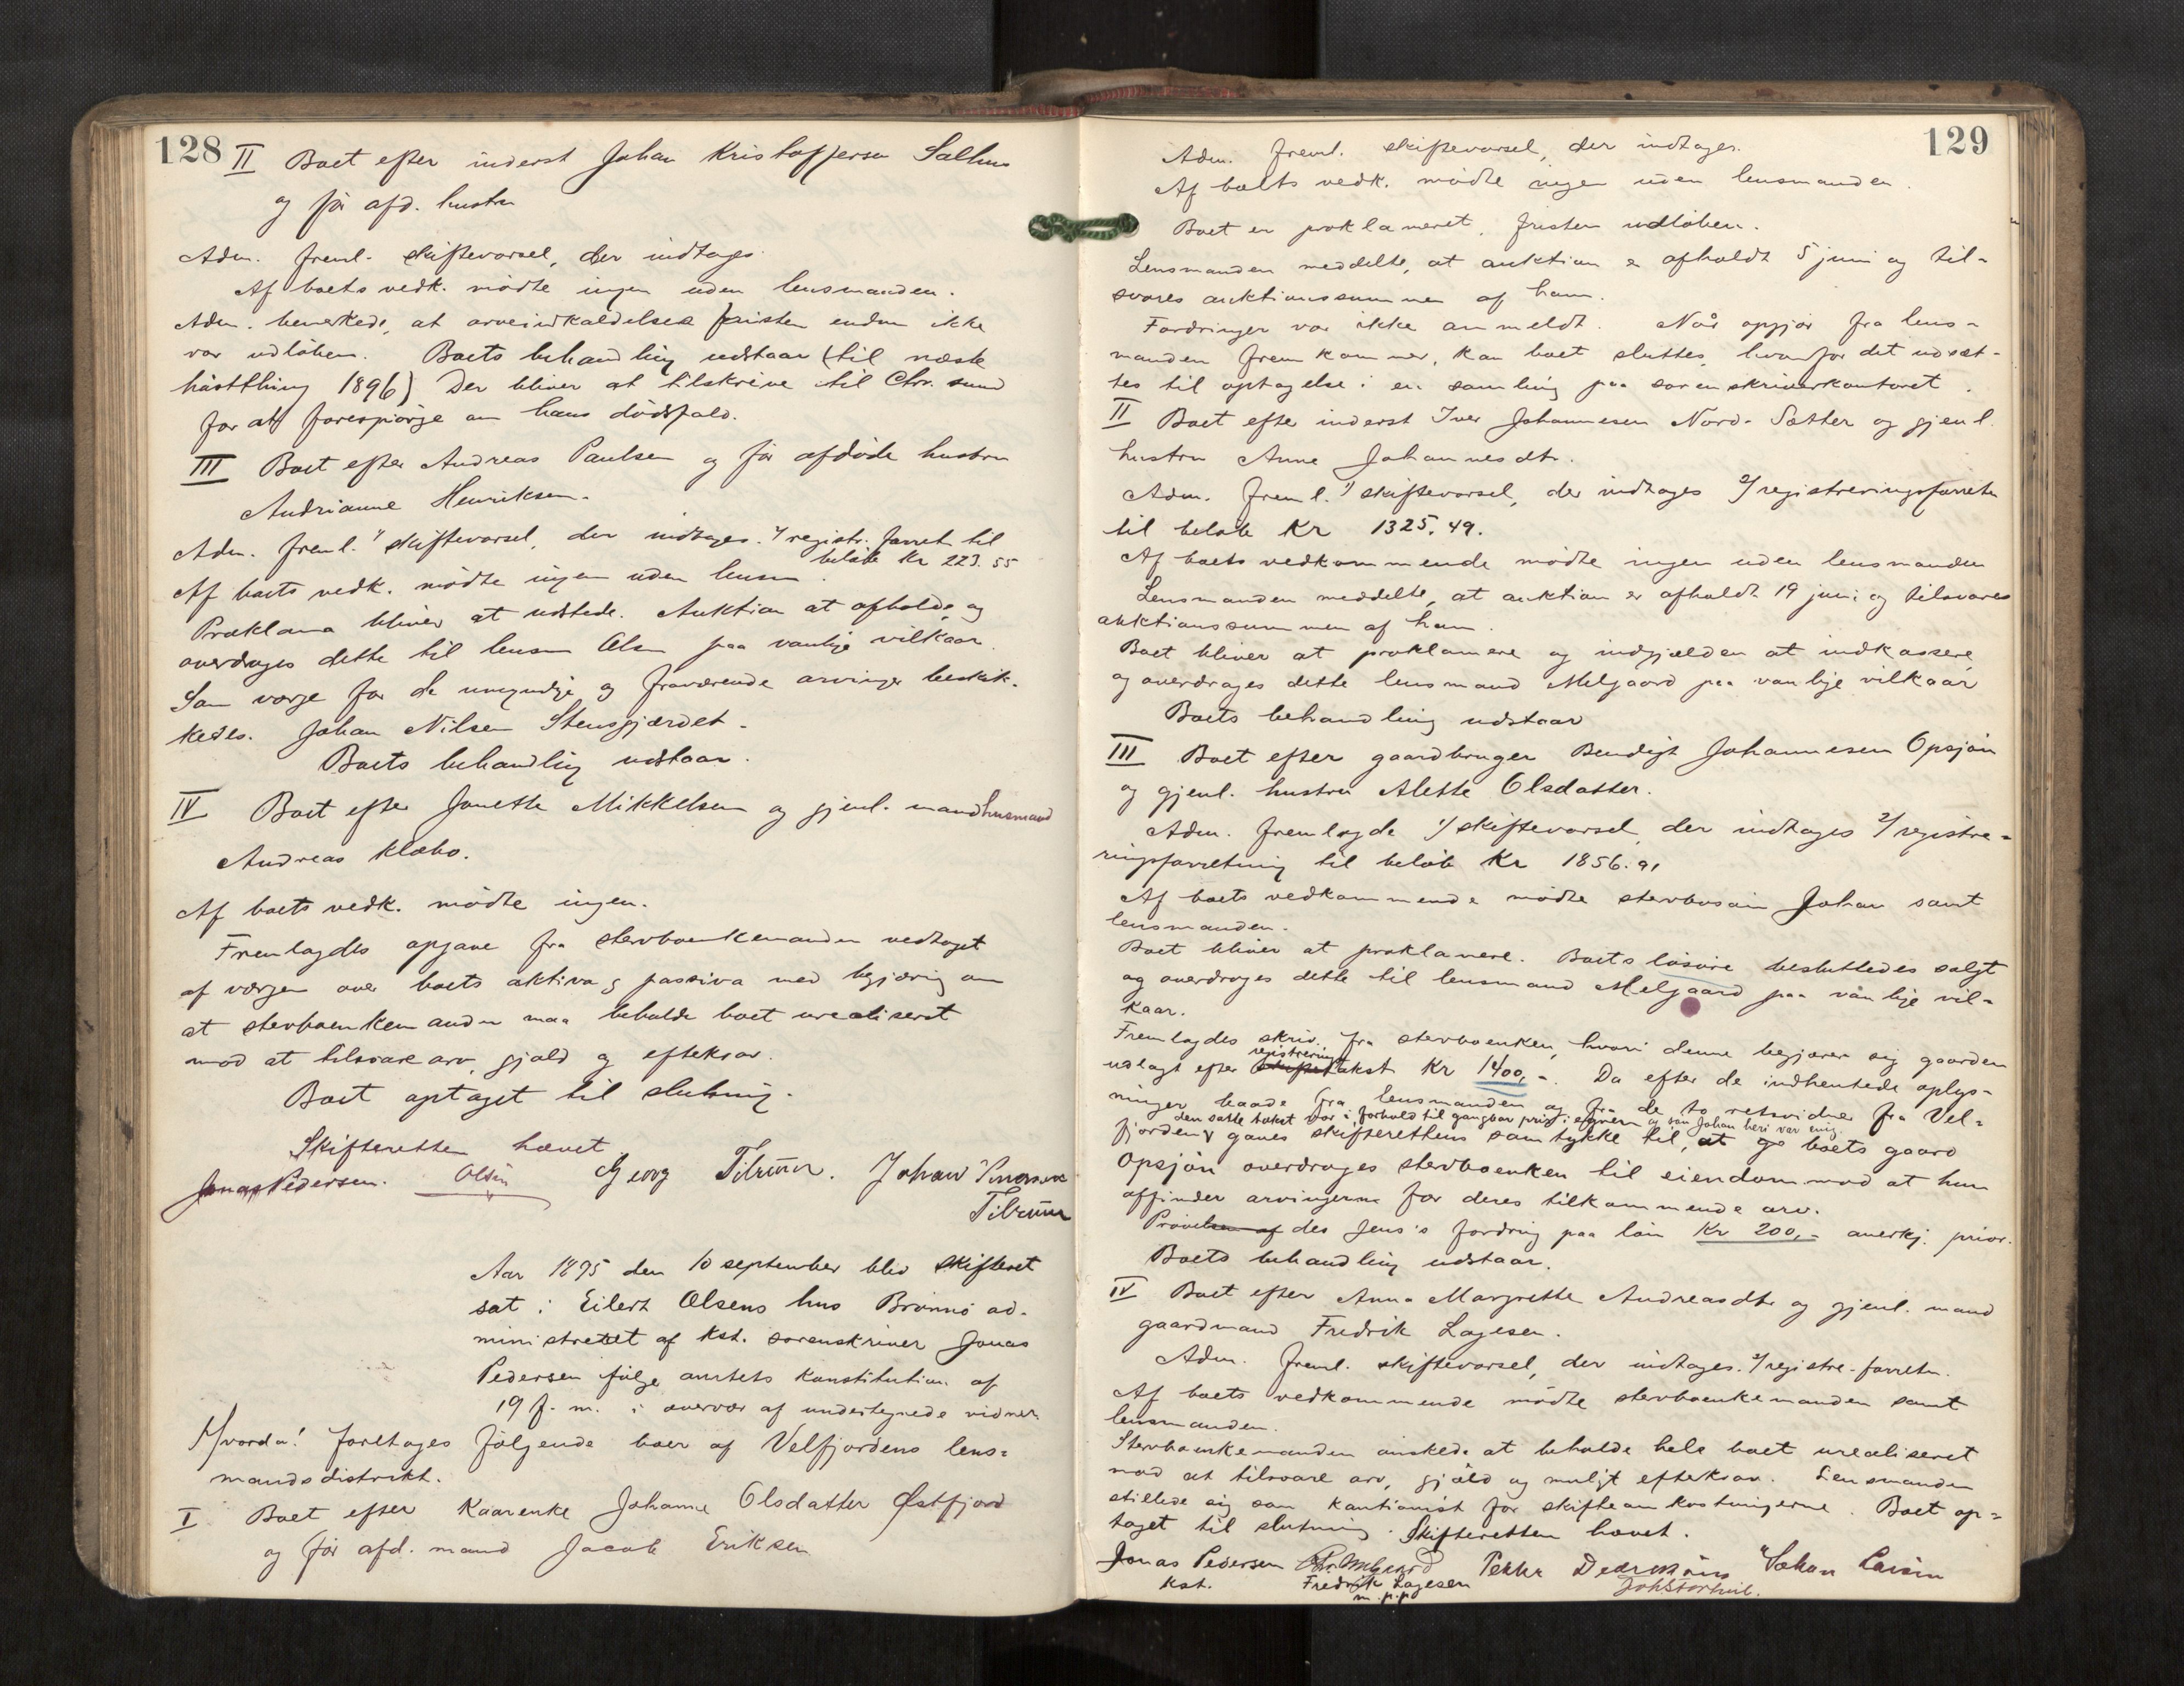 128
II Boet efter inderst Johan Kristoffersen Salhus
og før afd. hustru
Adm. freml. skiftevarsel, der indtages.
Af boets vedk. mødte ingen uden lensmanden.
Adm. bemerkede, at arveindkaldelses fristen endnu ikke
var udløben. Boets behandling udstaar (til næste
høstthing 1896) Der bliver at tilskrive til Chr. sund
for at forespørge om hans dødsfald.
III Boet efter Andreas Paulsen og før afdøde hustru
Andrianne Henriksen.
Adm. freml. 1) skiftevarsel, der indtages. 2) registr. forret. til
beløb Kr 223.55
Af boets vedk. mødte ingen uden lensm.
Proklama bliver at udstede. Auktion at afholde, og
overdrages dette til lensm Olsen paa vanlige vilkaar.
Som verge for de umyndige og fraværende arvinger beskik-
kedes. Johan Nilsen Stensgjærdet.
Boets behandling udstaar.
IV Boet efter Jonette Mikkelsen og gjenl. mand husmand
Andreas Klæbo.
Af boets vedk. mødte ingen.
Fremlagdes opgave fra stervboenkemanden vedtaget
af vergen over boets aktiva og passiva med begjæring om
at stervboenkemanden maa beholde boet urealiseret
mod at tilsvare arv, gjæld og efterkrav.
Boet optaget til slutning.
Skifteretten hævet
Jonas Pedersen. Olsen Georg Tilrem. Johan
Tilrem
Aar 1895 den 10 september blev skifteret
sat i Eilert Olsens hus Brønnø ad-
ministreret af kst. sorenskriver Jonas
Pedersen følge amtets konstitution af
19 f. m. i overvær af undertegnede vidner
Hvorda! foretages følgende boer af Velfjordens lens-
mandsdistrikt.
I Boet efter Kaarenke Johanne Olsdatter Østfjord
og før afd. mand Jacob Eriksen
129
Adm. freml. skiftevarsel, der indtages.
Af boets vedk. mødte ingen uden lensmanden.
Boet er proklameret, fristen udløben.
Lensmanden meddelte, at auktion er afholdt 5 juni og til-
svares auktionssummen af ham.
Fordringer var ikke anmeldt. Når opgjør fra lens-
manden fremkommer, kan boet sluttes, hvorfor det udsæt-
tes til optagelse i en samling paa sorenskriverkontoret.
II Boet efter inderst Iver Johannesen Nord-Sætter og gjenl.
hustru Anne Johannesdtr.
Adm. freml. 1) skiftevarsel, der indtages 2) registreringsforretn
til beløb Kr 1325.49.
Af boets vedkommende mødte ingen uden lensmanden
Lensmanden meddelte, at auktion er afholdt 19 juni og tilsvares
auktionssummen af ham.
Boet bliver at proklamere og indgjælden at indkassere,
og overdrages dette lensmand Melgaard paa vanlige vilkaar
Boets behandling udstaar
III Boet efter gaardbruger Bendigt Johannesen Opsjøn
og gjenl. hustru Alette Olsdatter.
Adm. fremlagde 1) skiftevarsel, der indtages 2) registre-
ringsforretning til beløb Kr 1856.91
Af boets vedkommende mødte stervbosøn Johan samt
lensmanden.
Boet bliver at proklamere. Boets løsøre besluttedes solgt
og overdrages dette til lensmand Melgaard paa vanlige vil-
kaar.
Fremlagdes skriv. fra stervboenken, hvori denne begjærer sig gaarden
registrerings
udlagt efter takst Kr 1400,-. Da efter de indhentede oplys-
ninger baade fra lensmanden og fra de to retsvidner fra Vel-
den satte takst var i forhold til gangbar pris i egnen og søn Johan heri var enig
fjorden, gaves skifterettens samtykke til, at boets gaard
Opsjøn overdrages stervboenken til eiendom mod at hun
affinder arvingerne for deres tilkommende arv.
Prøvelsen af des Jens's fordring paa løn Kr 200,- anerkj. prior.
Boets behandling udstaar.
IV Boet efter Anna Margrethe Andreasdtr og gjenl. mand
gaardmand Fredrik Lagesen.
Adm. freml. skiftevarsel, der indtages. 2) registre-forretn.
Af boets vedkommende mødte stervboenkemanden samt
lensmanden.
Stervboenkemanden ønskede at beholde hele boet urealiseret
mod at tilsvare arv, gjæld og muligt efterkrav. Lensmanden
stillede sig som kautionist for skifteomkostningerne. Boet op-
taget til slutning. Skifteretten hævet.
Jonas Pedersen Melgaard Petter Johan Larsen
kst. Fredrik Lagesen
m.p.p.